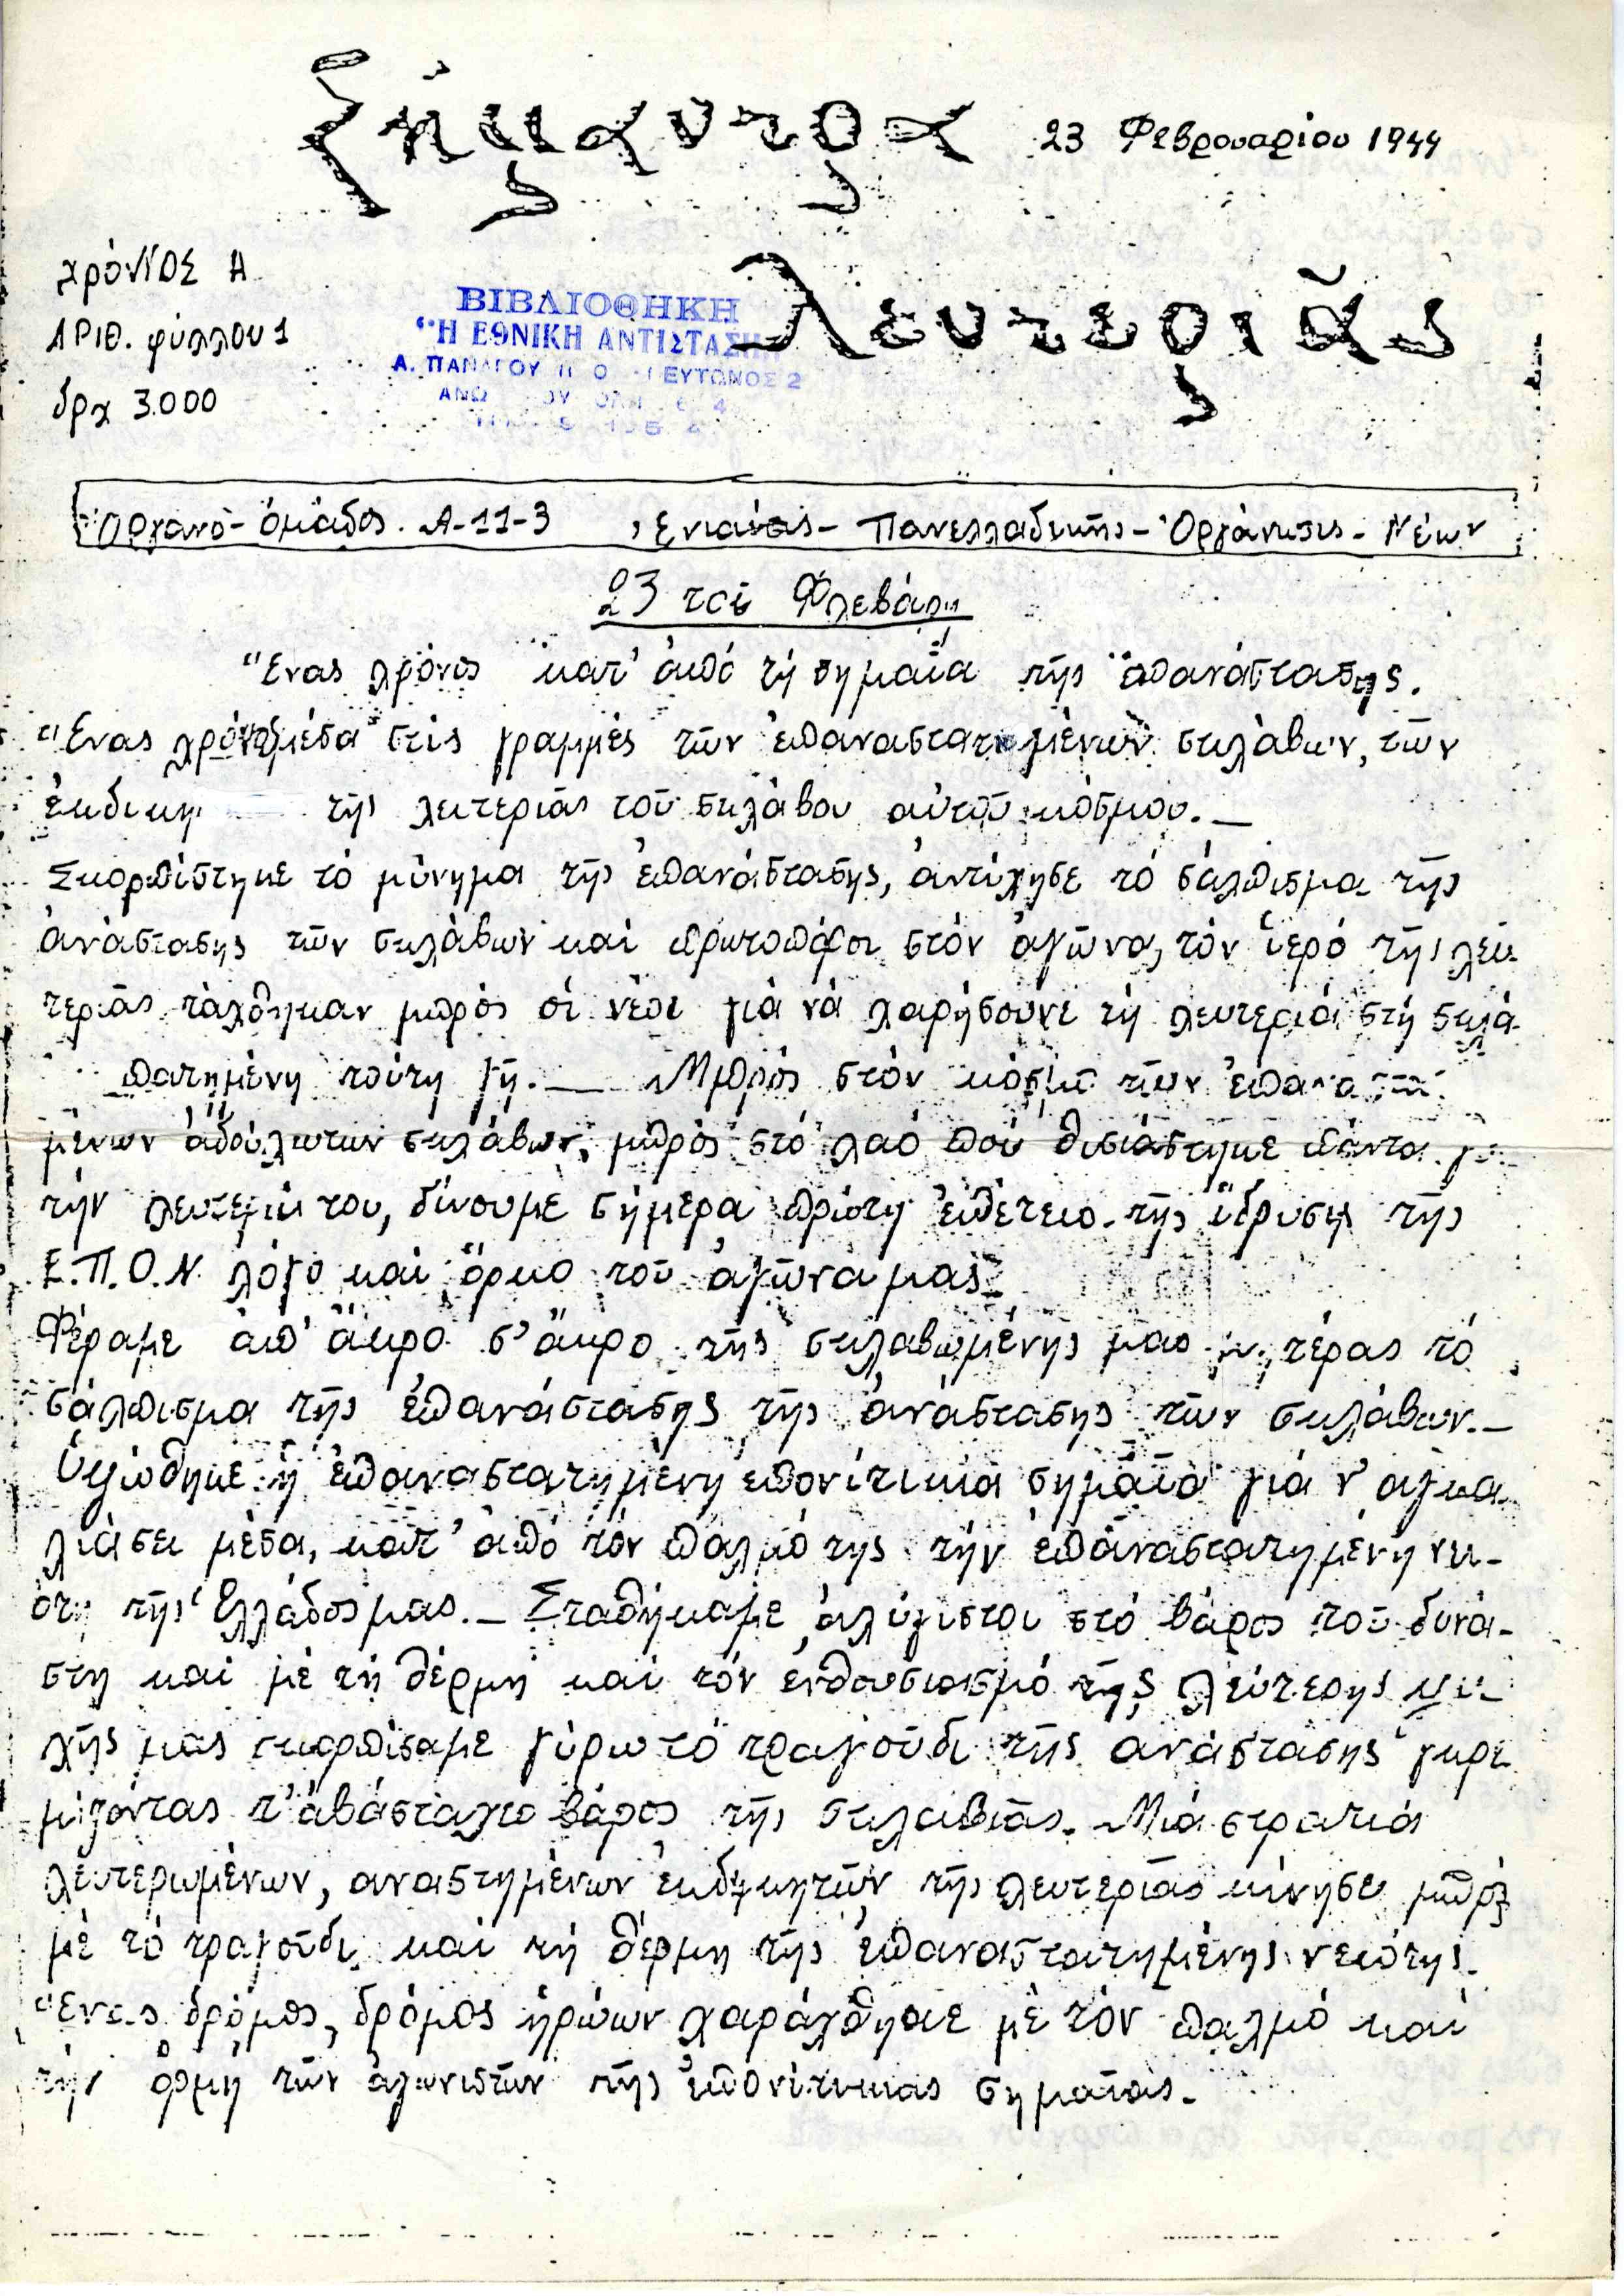 Σήμαντρα 23 Φεβρουαρίου 1944
Λευτεριᾶς
χρόνος Α
ΑΡΙΘ. φύλλου 1
δρχ 3.000
ΒΙΒΛΙΟΘΗΚΗ
"Η ΕΘΝΙΚΗ ΑΝΤΙΣΤΑΣΗ
Α. ΠΑΝΑΓΟΥ
Ὄργανο - ὁμάδος. Α-11-3 Ενιαίας - Πανελλαδικῆς - Ὀργάνωσις - Νέων
23 τοῦ Φλεβάρη
Ἕνας χρόνος κατ' ἀπό τή σημαία τῆς ἐπανάστασης.
Ἕνας χρόνος μέσα στίς γραμμές τῶν ἐπαναστατημένων σκλάβων, τῶν
ἐκδικη τῆς λευτεριᾶς τοῦ σκλάβου αὐτοῦ κόσμου.—
Σκορπίστηκε τό μύνημα τῆς ἐπανάστασης, ἀντίχησε τό σάλπισμα τῆς
ἀνάστασης τῶν σκλάβων καί πρωτοπόροι στόν ἀγῶνα, τόν ἱερό τῆς λευ-
τεριᾶς μπρός οἱ νέοι γιά νά χαρήσουνε τή λευτεριά στή σκλα-
πατημένη τούτη γῆ.— Μπρός στόν κόσμο τῶν
μένων ἀδούλωτων σκλάβων, μπρός στό λαό πού θυσιάστηκε πάντα
τήν λευτεριά του, δίνουμε σήμερα πρώτη ἐπέτειο τῆς ἵδρυσης τῆς
Ε.Π.Ο.Ν λόγο καί ὅρκο τοῦ ἀγῶνα μας
Φέραμε ἀπ' ἄκρο σ' ἄκρο τῆς σκλαβωμένης μας τό
σάλπισμα τῆς ἐπανάστασης τῆς ἀνάστασης τῶν σκλάβων.—
Ὑψώθηκε ἡ ἐπαναστατημένη ἐπονίτικια σημαία γιά ν' αγκα-
λιάσει μέσα, κατ' ἀπό τόν παλμό της τήν ἐπαναστατημένη νει-
ότη τῆς Ἑλλάδος μας.— Σταθήκαμε ἀλύγιστοι στό βάρος τοῦ δυνά-
στη καί μέ τή θέρμη καί τόν ἐνθουσιασμό τῆς λεύτερης ψυ-
χῆς μας σκορπίσαμε γύρω τό τραγοῦδι τῆς ανάστασης γκρε
μίζοντας τ' ἀβάσταχτο βάρος τῆς σκλαβιᾶς. Μιά στρατιά
λευτερωμένων, αναστημένων ἐκδικητῶν τῆς λευτεριᾶς κίνησε μπρός
μέ τό τραγοῦδι καί τή θέρμη τῆς ἐπαναστατημένης νειότης.
Ἕνας δρόμος, δρόμος ἡρώων χαράχθηκε μέ τόν παλμό καί
τήν ὁρμή τῶν ἀγωνιστῶν τῆς ἐπονίτικιας σημαίας.